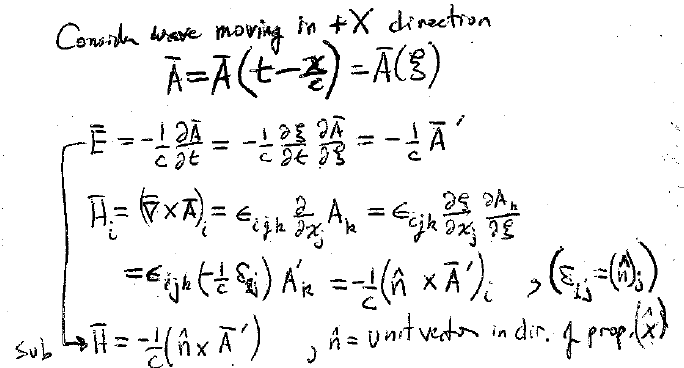 Consider wave moving in +X direction
Ā = Ā(t - x/c) = Ā(ξ)
Ē = -1/c ∂Ā/∂t = -1/c ∂ξ/∂t ∂Ā/∂ξ = -1/c Ā′
H̄ᵢ = (∇̄ × Ā)ᵢ = ϵᵢⱼₖ ∂/∂xⱼ Aₖ = ϵᵢⱼₖ ∂ξ/∂xⱼ ∂Aₖ/∂ξ
= ϵᵢⱼₖ (-1/c δₓⱼ) A′ₖ = -1/c (n̂ × Ā′)ᵢ , (δₓⱼ = (n̂)ⱼ)
sub → H̄ = -1/c (n̂ × Ā′) , n̂ = unit vector in dir. of prop. (x̂)